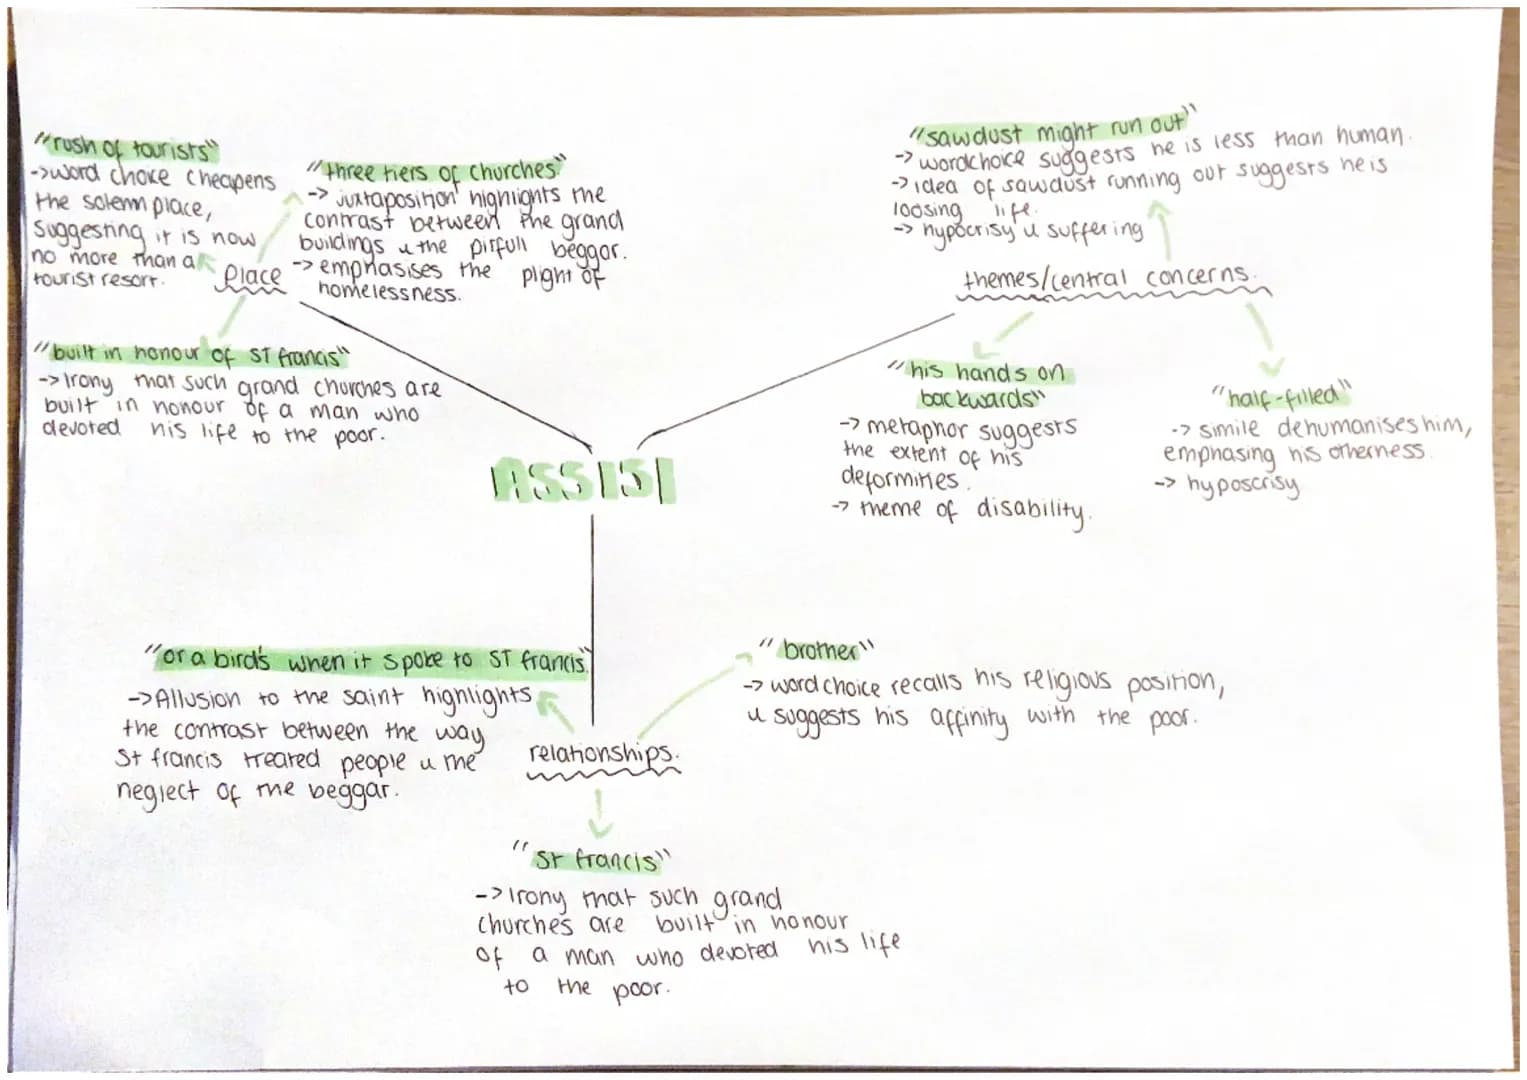 "rush of tourists"
->word choice cheapens
the solemn place,
suggesting it is now
no more than a
tourist resort.
"three tiers of churches"
-> juxtaposition highlights the
contrast between the grand
buildings & the pitfull beggar.
-> emphasises the plight of
homelessness.
Place
"built in honour of ST francis"
-> Irony that such grand churches are
built in honour of a man who
devoted his life to the poor.
"sawdust might run out"
-> wordchoice suggests he is less than human.
-> idea of sawdust running out suggests he is
loosing life.
-> hypocrisy & suffering
themes/central concerns.
"his hands on
backwards"
-> metaphor suggests
the extent of his
deformities.
-> theme of disability.
"half-filled"
-> simile dehumanises him,
emphasing his otherness.
-> hyposcrisy
ASSISI
"or a bird's when it spoke to ST francis.
->Allusion to the saint highlights
the contrast between the way
St francis treated people & the
neglect of the beggar.
relationships.
"brother"
-> word choice recalls his religious position,
& suggests his affinity with the poor.
"St francis"
-> Irony that such grand
churches are built in honour
of a man who devoted his life
to the poor.